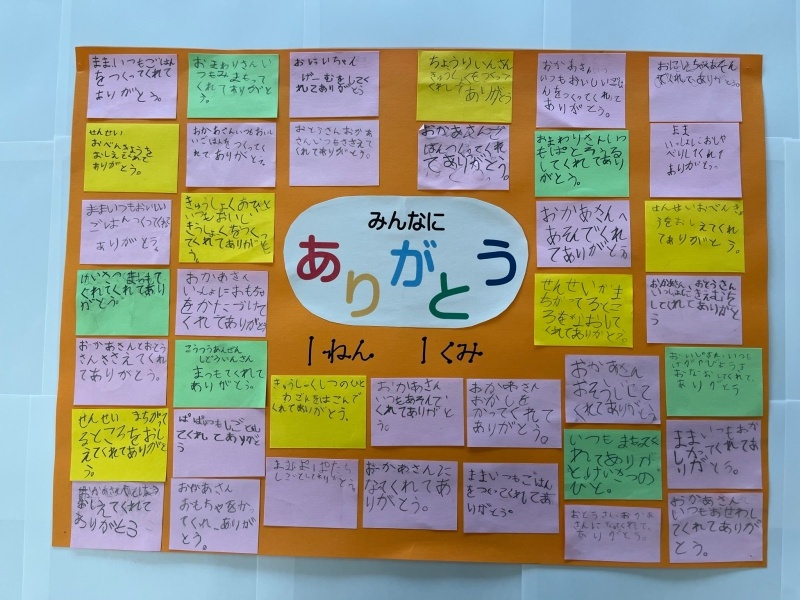 ままいつもごはん
をつくってくれて
ありがとう。
おまわりさん
いつもまもって
くれてありがとう。
おにいちゃん
げーむをしてく
れてありがとう
ちょうりいんさん
きゅうしょくをつくって
くれて ありがとう
おかあさん
いつもおいしいごは
んをつくってくれて
ありがとう。
おにいちゃんあそん
でくれてありがとう。
せんせい
おべんきょうを
おしえてくれて
ありがとう。
おかあさんいつもおいし
いごはんをつくってく
れて ありがとう。
おとうさんおかあ
さんいつもささえて
くれてありがとう。
おかあさんご
はんつくってくれ
てありがとう。
おまわりさんいつ
もぱとろうる
してくれてありが
とう。
まま
いっしょにおしゃ
べりしてくれて
ありがとう。
ままいつもおいしい
ごはんつくってくれて
ありがとう。
きゅうしょくのひと
いつもおいしい
きゅうしょくをつくっ
てくれてありがとう。
みんなに
ありがとう
1ねん 1くみ
おかあさんへ
あそんでくれ
てありがとう
せんせいおべんきょ
うをおしえてくれ
てありがとう。
けいさつ まもって
くれてくれてあり
がとう
おかあさん
いっしょにおもちゃ
をかたづけて
くれてありがとう
せんせいがま
ちがってるとこ
ろを なおして
くれてありがとう。
おかあさん、おとうさん
してくれてありがとう
おかあさんとおとう
さんささえてくれ
てありがとう。
こうつうあんぜん
しどういんさん
まってくれて
ありがとう。
きゅうしょくしつのひと
わごんをはこんで
くれてありがとう、
おかあさん
いつもあそんで
くれてありがと
う。
おかあさん
おかしを
かってくれて
ありがとう。
おかあさん
おそうじして
くれてありがとう
おいしゃさん いつも
なおしてくれて、
ありがとう
せんせい まちがって
るところをおし
えてくれてありが
とう。
ぱぱいつもしごとし
てくれてありがと
う
おしえてくれて
ありがとう
おかあさん
おもちゃをかっ
てくれてありがと
う。
おかあさんに
なってくれてあ
りがとう。
ままいつもごはん
をついでくれてあ
りがとう。
いつも まもってく
れてありがと
うけいさつの
ひと。
まま、いつもおか
しかってくれてあ
りがとう。
おとうさんおかあ
さんになってくれて、
ありがとう
おかあさん
いつもおせわし
てくれてありが
とう。